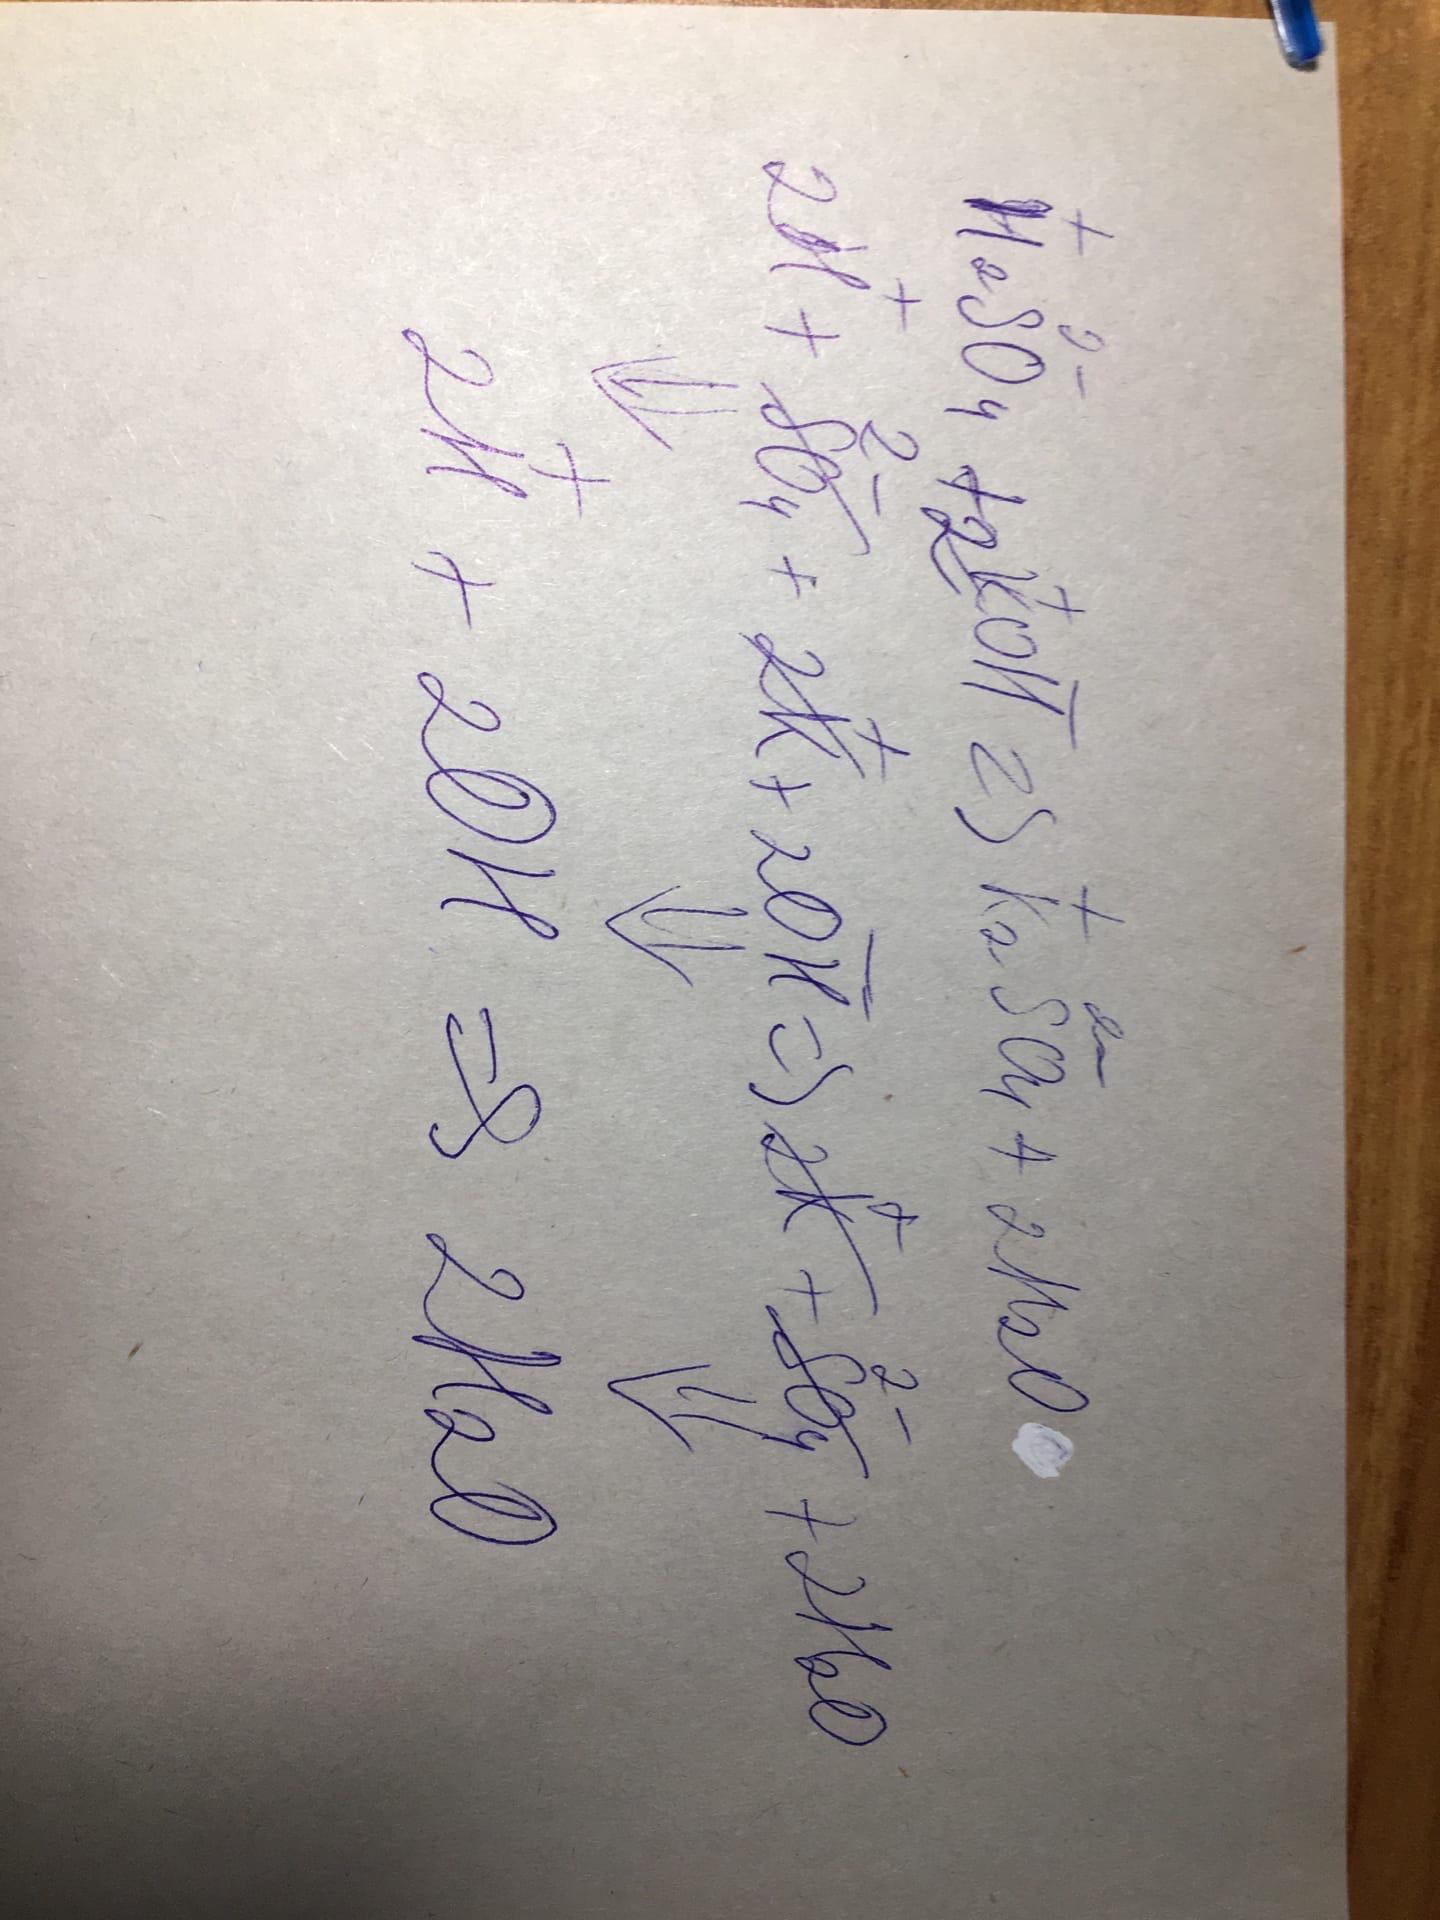 H₂⁺SO₄²⁻ + 2K⁺OH⁻ => K₂⁺SO₄²⁻ + 2H₂O
2H⁺ + SO₄²⁻ + 2K⁺ + 2OH⁻ => 2K⁺ + SO₄²⁻ + 2H₂O
⇓ ⇓ ⇓
2H⁺ + 2OH => 2H₂O